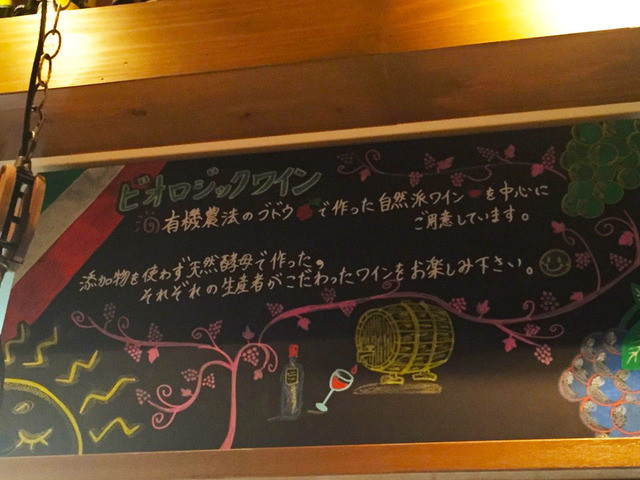 ビオロジックワイン
有機農法のブドウで作った自然派ワインを中心に
ご用意しています。
添加物を使わず天然酵母で作った。
それぞれの生産者がこだわったワインをお楽しみ下さい。